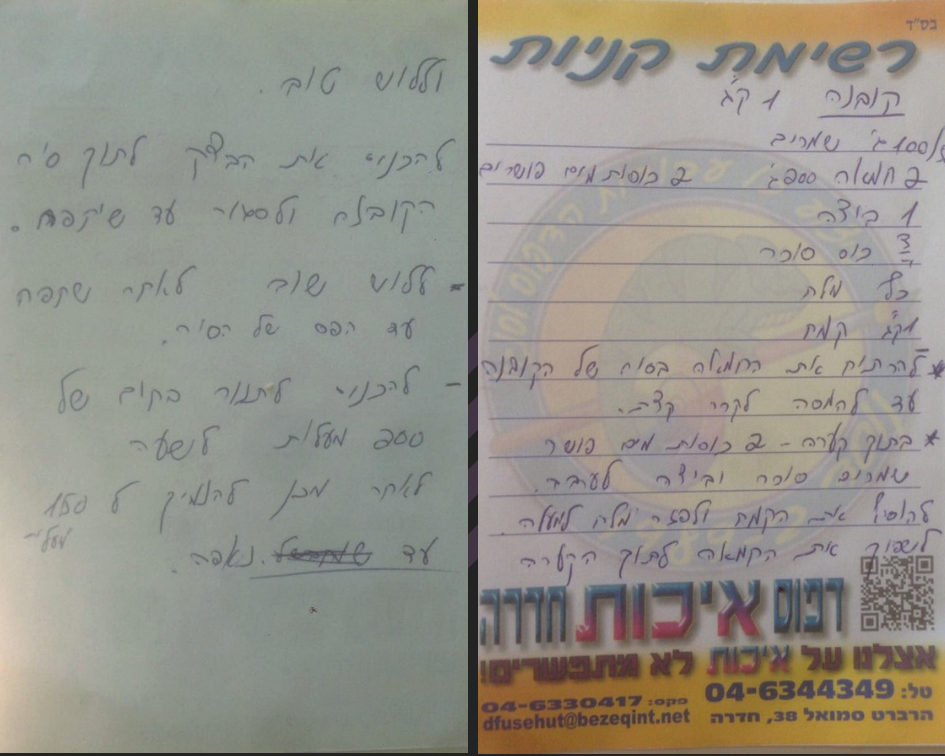 בס"ד
רשימת קניות
קובנה 1 קג'
100 ג' שמרים
חמאה 200 ג' 2 כוסות מים פושרים
1 ביצה
כוס סוכר
כף מלח
1 קג' קמח
* להרתיח את החמאה בסיר של הקובנה
עד להמסה לקרר קצת.
* בתוך קערה - 2 כוסות מים פושר
שמרים סוכר וביצה לערבב.
להוסיף את הקמח ולפזר מלח למעלה
לשפוך את החמאה לתוך הקערה
דפוס איכות חדרה
אצלנו על איכות לא מתפשרים!
טל: 04-6344349 פקס: 04-6330417
הרברט סמואל 38, חדרה dfusehut@bezeqint.net
וללוש טוב.
להכניס את הבצק לתוך סיר
הקובנה ולסגור עד שיתפח.
- ללוש שוב לאחר שתפח
עד הפס של הסיר.
- להכניס לתנור בחום של
200 מעלות לשעה
לאחר מכן להנמיך ל 150
מעלות
עד נאפה.